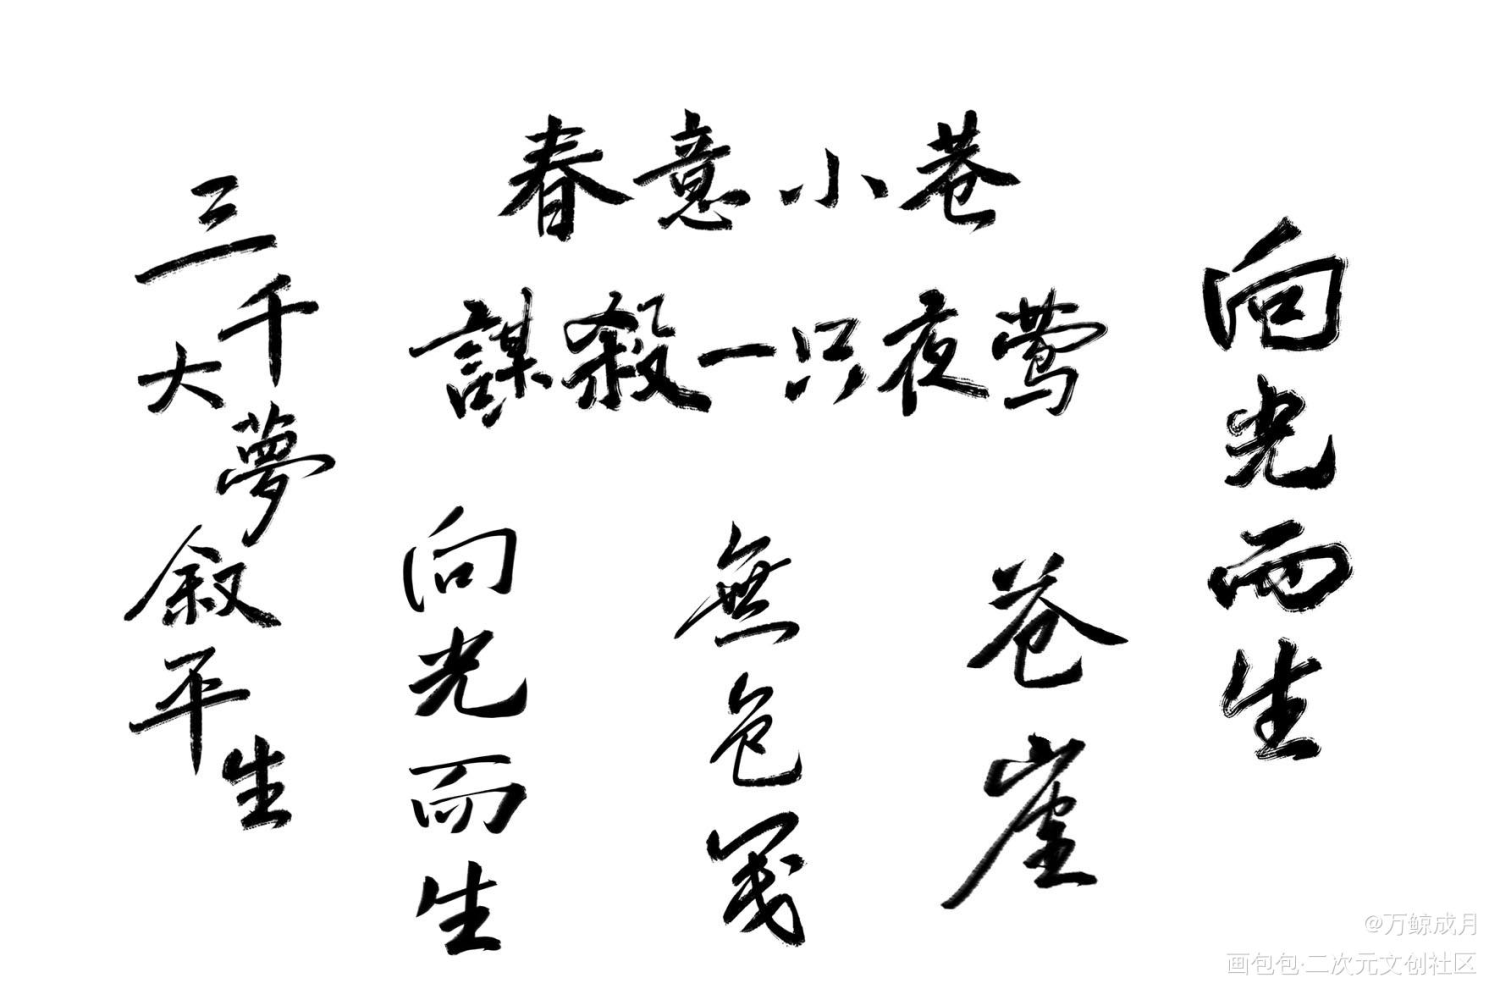 春意小巷
謀殺一只夜莺
三千大夢叙平生
向光而生
無色笺
苍崖
向光而生
@万鲸成月
画包包·二次元文创社区